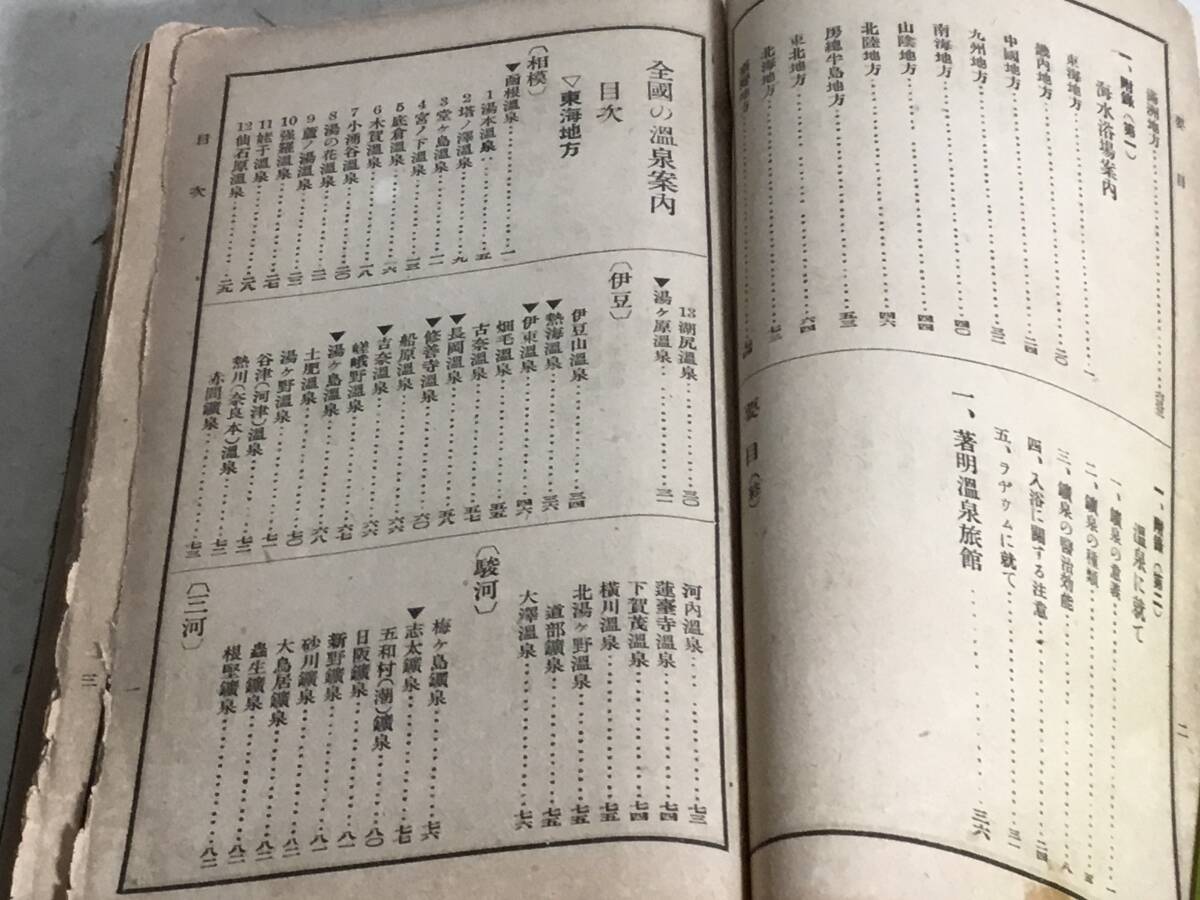 要目
滿洲地方
一、附錄(第一)
海水浴場案內
東海地方 一
畿內地方 二〇
中國地方 二四
九州地方 三二
南海地方 四〇
山陰地方 四四
北陸地方 四六
房總半島地方 五三
東北地方 六四
北海地方 七三
一、附錄(第二)
溫泉に就て
一、鑛泉の意義 一
二、鑛泉の種類 五
三、鑛泉の醫治効能 八
四、入浴に關する注意 二四
五、ラヂウムに就て 三一
一、著明溫泉旅館 三六
要目(終)
二
全國の溫泉案內
目次
▽東海地方
〔相模〕
▼函根溫泉 一
1 湯本溫泉 五
2 塔ノ澤溫泉 九
3 堂ヶ島溫泉 一一
4 宮ノ下溫泉 一三
5 底倉溫泉 一六
6 木賀溫泉 一八
7 小涌谷溫泉 二〇
8 湯の花溫泉 二一
9 蘆ノ湯溫泉 二二
10 强羅溫泉 二三
11 姥子溫泉 二七
12 仙石原溫泉 二九
13 湖尻溫泉 三〇
▼湯ヶ原溫泉 三一
〔伊豆〕
伊豆山溫泉 三四
▼熱海溫泉 三六
▼伊東溫泉 四六
畑毛溫泉 五五
古奈溫泉 五七
▼長岡溫泉 五八
▼修善寺溫泉 六〇
船原溫泉 六六
▼吉奈溫泉 六六
嵯峨野溫泉 六七
▼湯ヶ島溫泉 六八
土肥溫泉 七〇
湯ヶ野溫泉 七一
谷津(河津)溫泉 七二
熱川(奈良本)溫泉 七二
赤間鑛泉 七三
河內溫泉 七三
蓮臺寺溫泉 七四
下賀茂溫泉 七四
橫川溫泉 七五
北湯ヶ野溫泉 七五
道部鑛泉 七五
大澤溫泉 七六
〔駿河〕
梅ヶ島鑛泉 七六
▼志太鑛泉 七七
五和村(潮)鑛泉 八〇
日阪鑛泉 八一
新野鑛泉 八一
砂川鑛泉 八二
大鳥居鑛泉 八二
蟲生鑛泉 八二
根堅鑛泉 八二
〔三河〕
目次
一
三